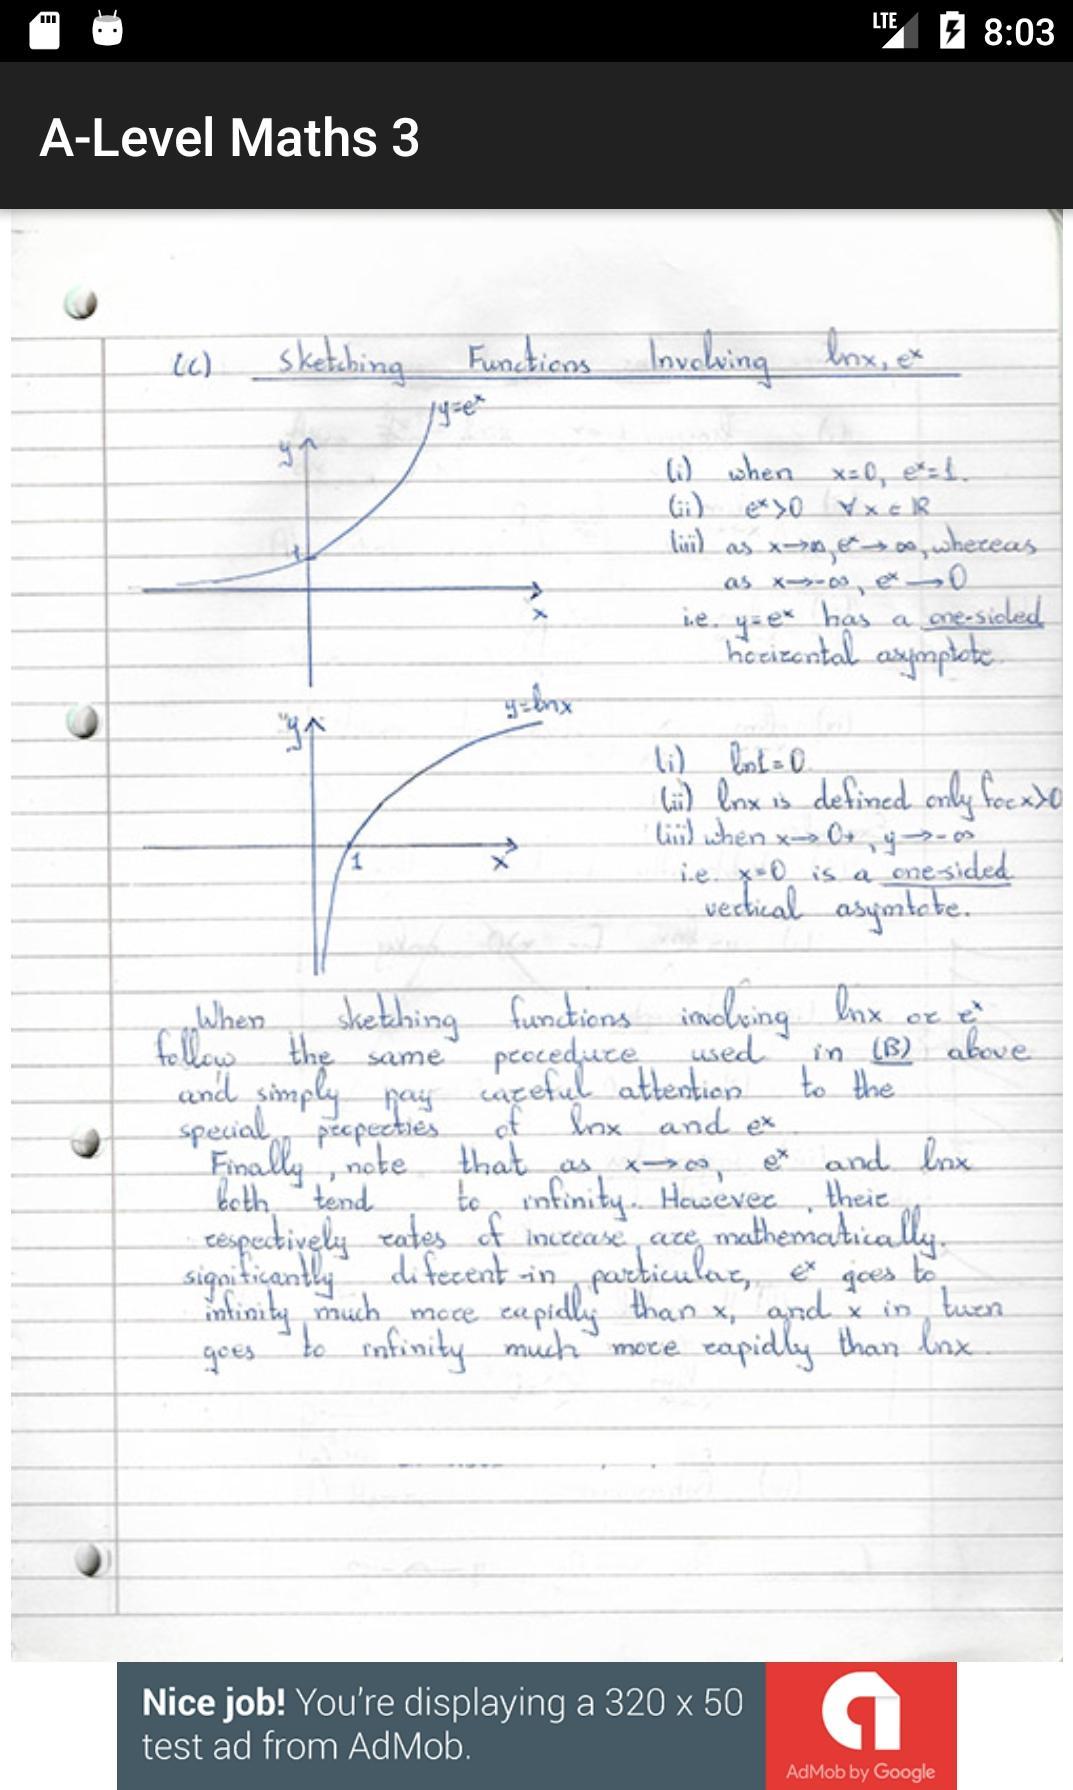 LTE 8:03
A-Level Maths 3
(C) Sketching Functions Involving lnx, eˣ
y=eˣ
y
1
x
(i) when x=0, eˣ=1.
(ii) eˣ>0 ∀x∈ℝ
(iii) as x→∞, eˣ→∞, whereas
as x→-∞, eˣ→0
i.e. y=eˣ has a one-sided
horizontal asymptote.
y=lnx
y
1
x
(i) ln1=0.
(ii) lnx is defined only for x>0
(iii) when x→0+, y→-∞
i.e. x=0 is a one-sided
vertical asymtote.
When sketching functions involving lnx or eˣ
follow the same procedure used in (B) above
and simply pay careful attention to the
special properties of lnx and eˣ
Finally, note that as x→∞, eˣ and lnx
both tend to infinity. However, their
respectively rates of increase are mathematically.
significantly diferent-in particular, eˣ goes to
infinity much more rapidly than x, and x in turn
goes to infinity much more rapidly than lnx.
Nice job! You're displaying a 320 x 50
test ad from AdMob.
AdMob by Google